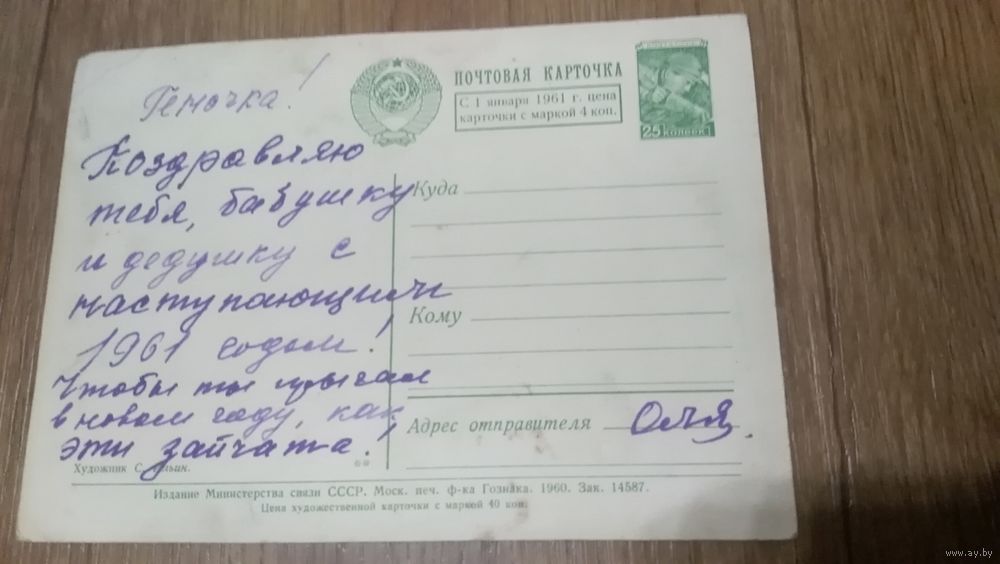 Геночка!
Поздравляю
тебя, бабушку
и дедушку с
наступающим
1961 годом!
Чтобы ты прыгал
в новом году, как
эти зайчата!
Художник С.
ПОЧТОВАЯ КАРТОЧКА
С 1 января 1961 г. цена
карточки с маркой 4 коп.
25 КОПЕЕК
Куда
Кому
Адрес отправителя Оля.
Издание Министерства связи СССР. Моск. печ. ф-ка Гознака. 1960. Зак. 14587.
Цена художественной карточки с маркой 40 коп.
www.ay.by